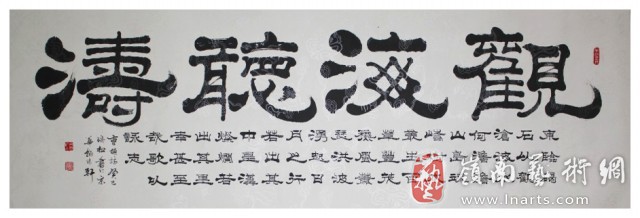 觀海聽濤
東臨碣
石以觀
滄海水
何澹澹
山島竦
峙樹木
叢生百
草豐茂
秋風蕭
瑟洪波
湧起日
月之行
若出其
中星漢
燦爛若
出其里
幸甚至
哉歌以
詠志
曹操詩 癸巳
藝
嶺南藝術網
www.lnarts.com